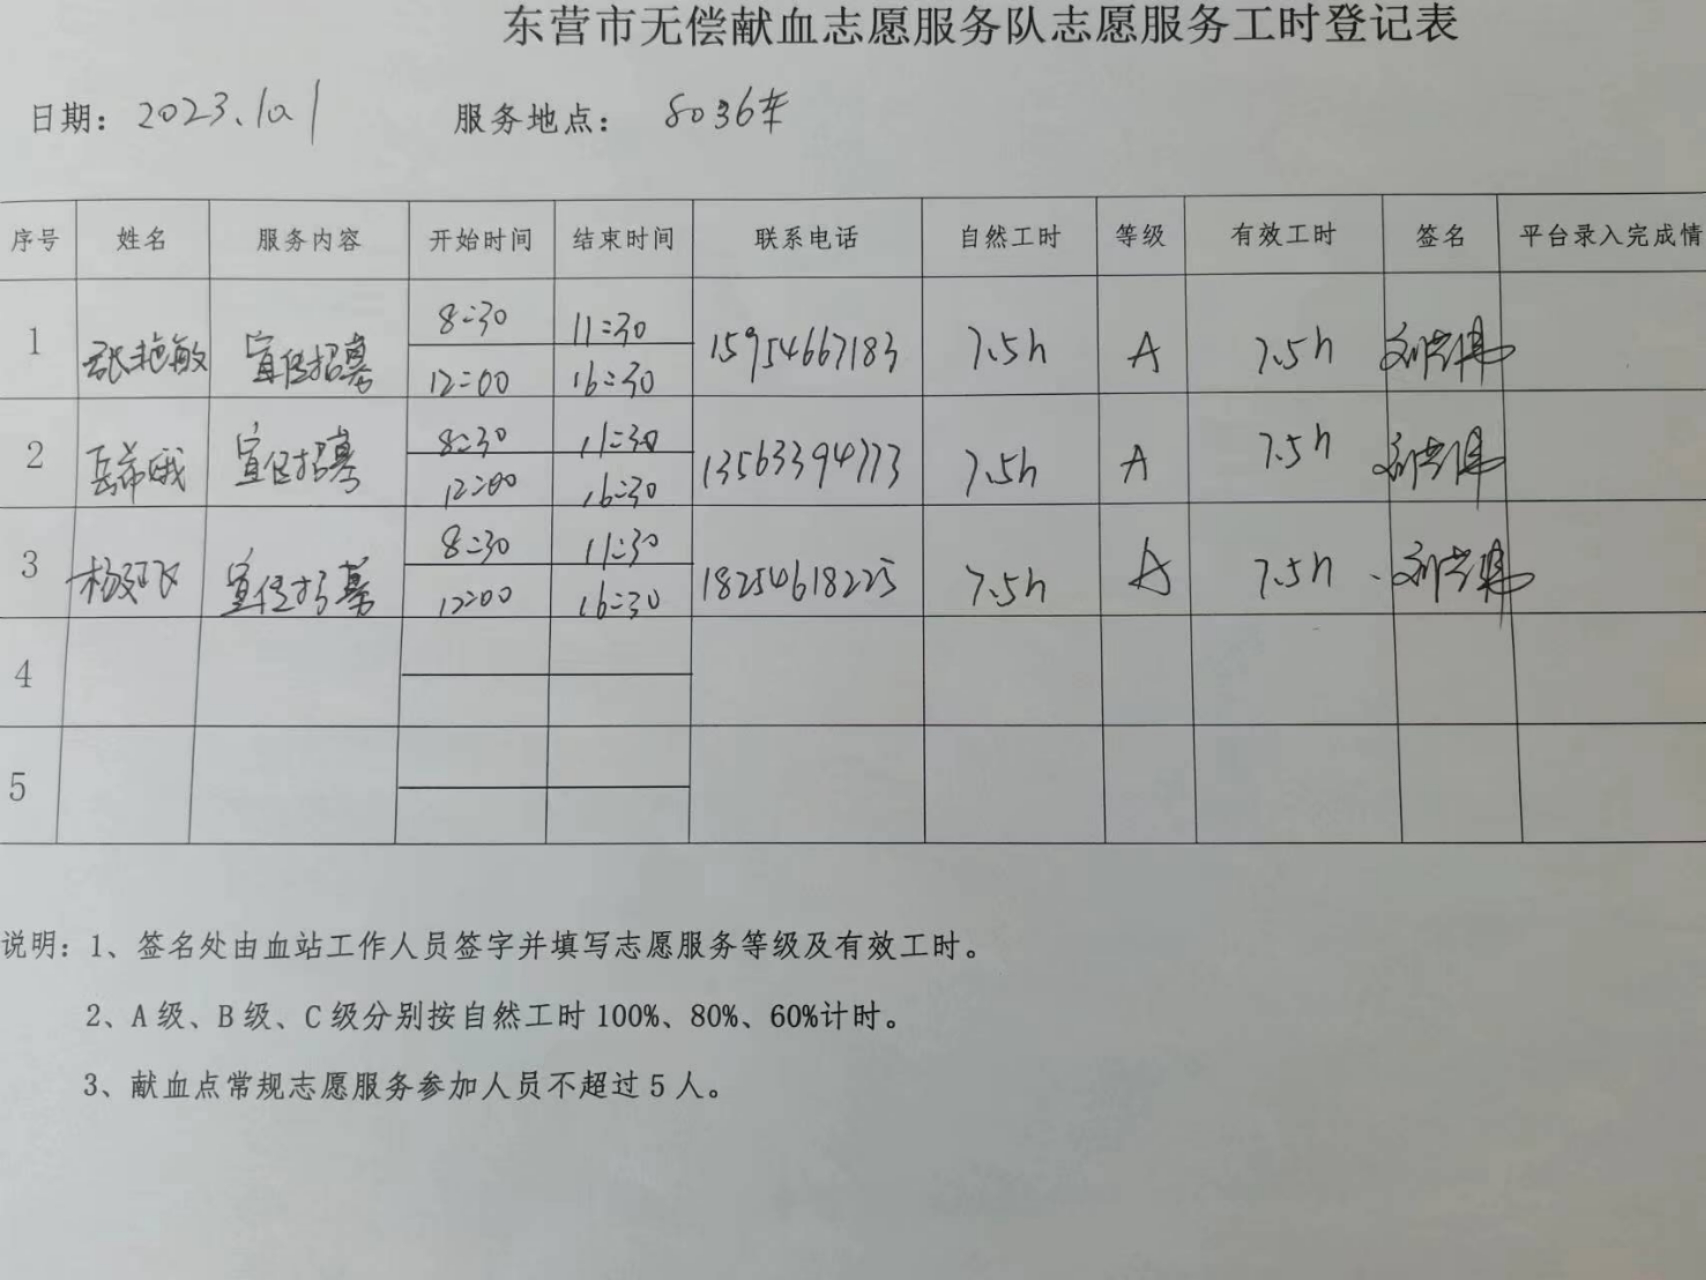 东营市无偿献血志愿服务队志愿服务工时登记表
日期: 2023.10.1 服务地点: 8036车
序号 姓名 服务内容 开始时间 结束时间 联系电话 自然工时 等级 有效工时 签名 平台录入完成情
1 张艳敏 宣传招募 8:30 11:30 15954667183 7.5h A 7.5h
12:00 16:30
2 宣传招募 8:30 11:30 13563394773 7.5h A 7.5h
12:00 16:30
3 宣传招募 8:30 11:30 18254618225 7.5h A 7.5h
12:00 16:30
4
5
说明: 1、签名处由血站工作人员签字并填写志愿服务等级及有效工时。
2、A级、B级、C级分别按自然工时100%、80%、60%计时。
3、献血点常规志愿服务参加人员不超过5人。